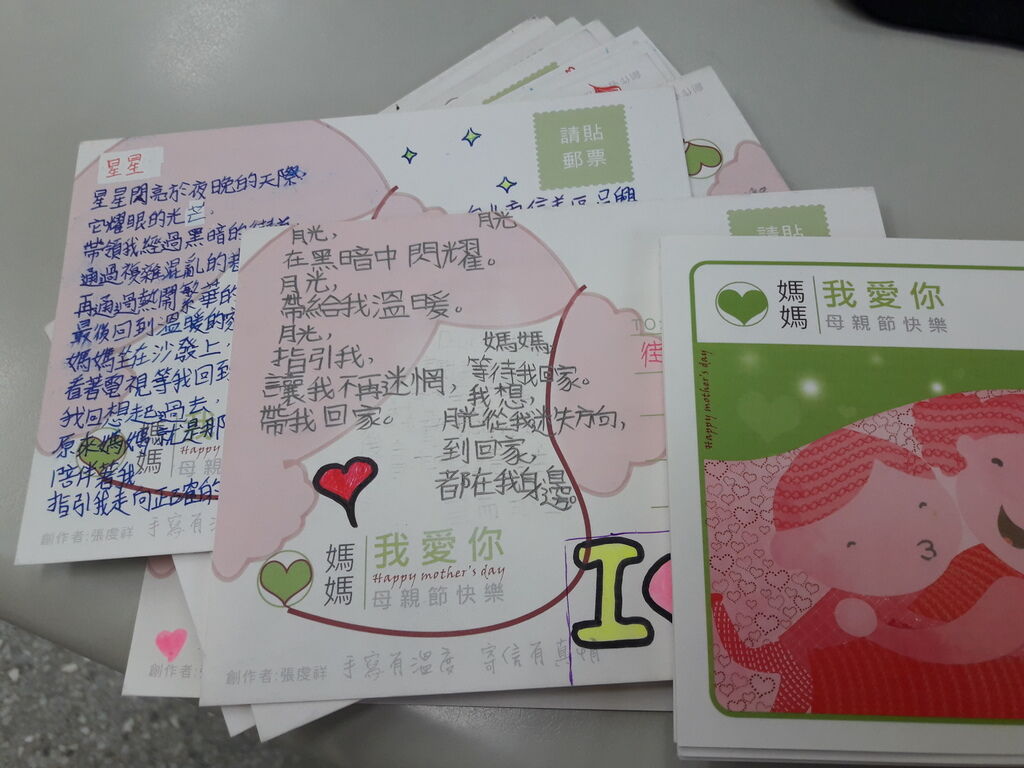 星星
星星閃亮於夜晚的天際
它耀眼的光芒,
帶領我經過黑暗的街道
通過複雜混亂的巷
再通過熱鬧繁華的
最後回到溫暖的家
媽媽坐在沙發上,
看著電視等我回到
我回想起過去,
原來媽媽就是那
陪伴著我
指引我走向正確的
Happy
媽 母親
創作者:張虔祥
手寫有溫
請貼
郵票
月光
月光,
在黑暗中閃耀。
月光,
帶給我溫暖。
月光,
指引我,
讓我不再迷惘,
帶我回家。
媽媽,
等待我回家。
我想,
月光從我迷失方向,
到回家,
都在我身邊。
媽媽
我愛你
Happy mother's day
母親節快樂
創作者:張虔祥
手寫有溫度 寄信有真情
請貼
TO:
I
創作者:
媽媽
我愛你
母親節快樂
Happy mother's day